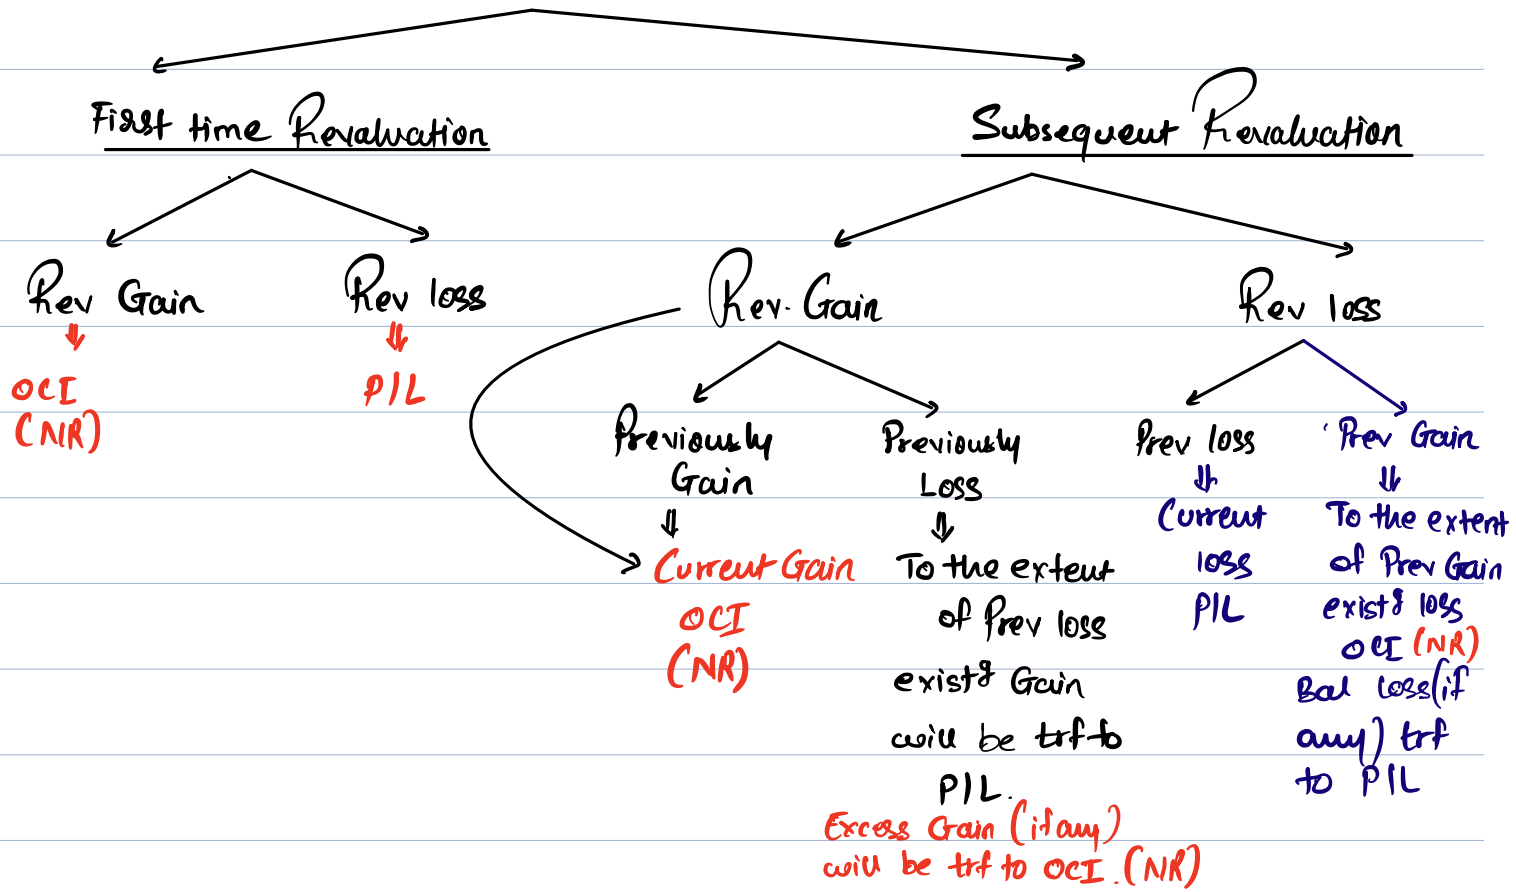 First time Revaluation
Subsequent Revaluation
Rev Gain
Rev loss
OCI
(NR)
P/L
Rev. Gain
Rev loss
Previously
Gain
Current Gain
OCI
(NR)
Previously
Loss
To the extent
of Prev loss
existg Gain
will be trf to
P/L.
Excess Gain (if any)
will be trf to OCI. (NR)
Prev loss
Current
loss
P/L
Prev Gain
To the extent
of Prev Gain
existg loss
OCI (NR)
Bal loss (if
any) trf
to P/L